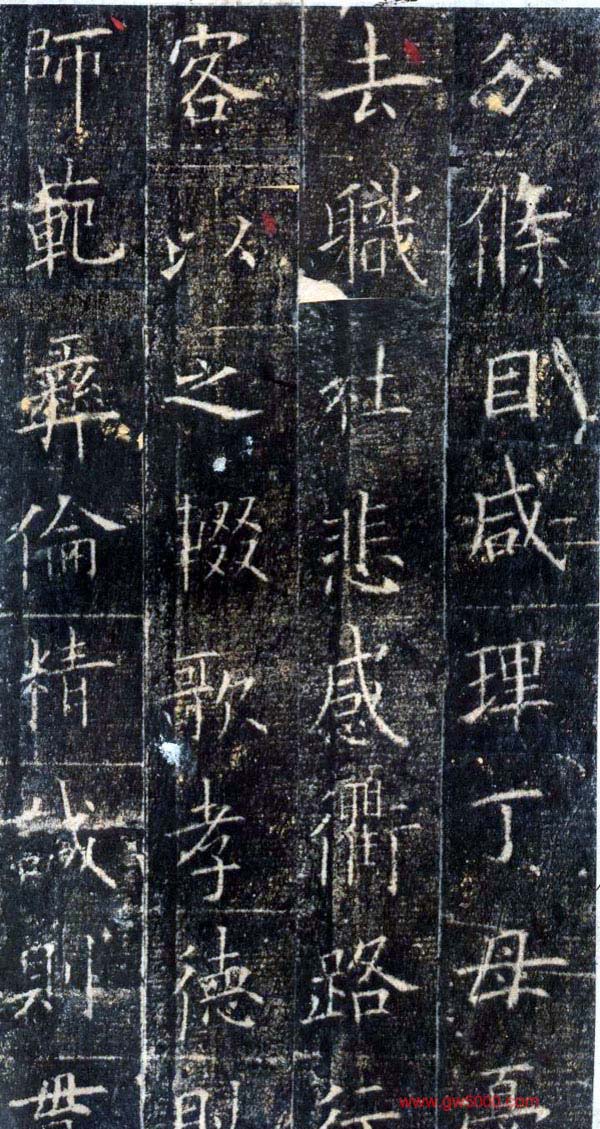 分條目咸理丁母憂
去職社悲感衢路行
客以之輟歌孝德則
師範彝倫精誠則貫
www.gw5000.com